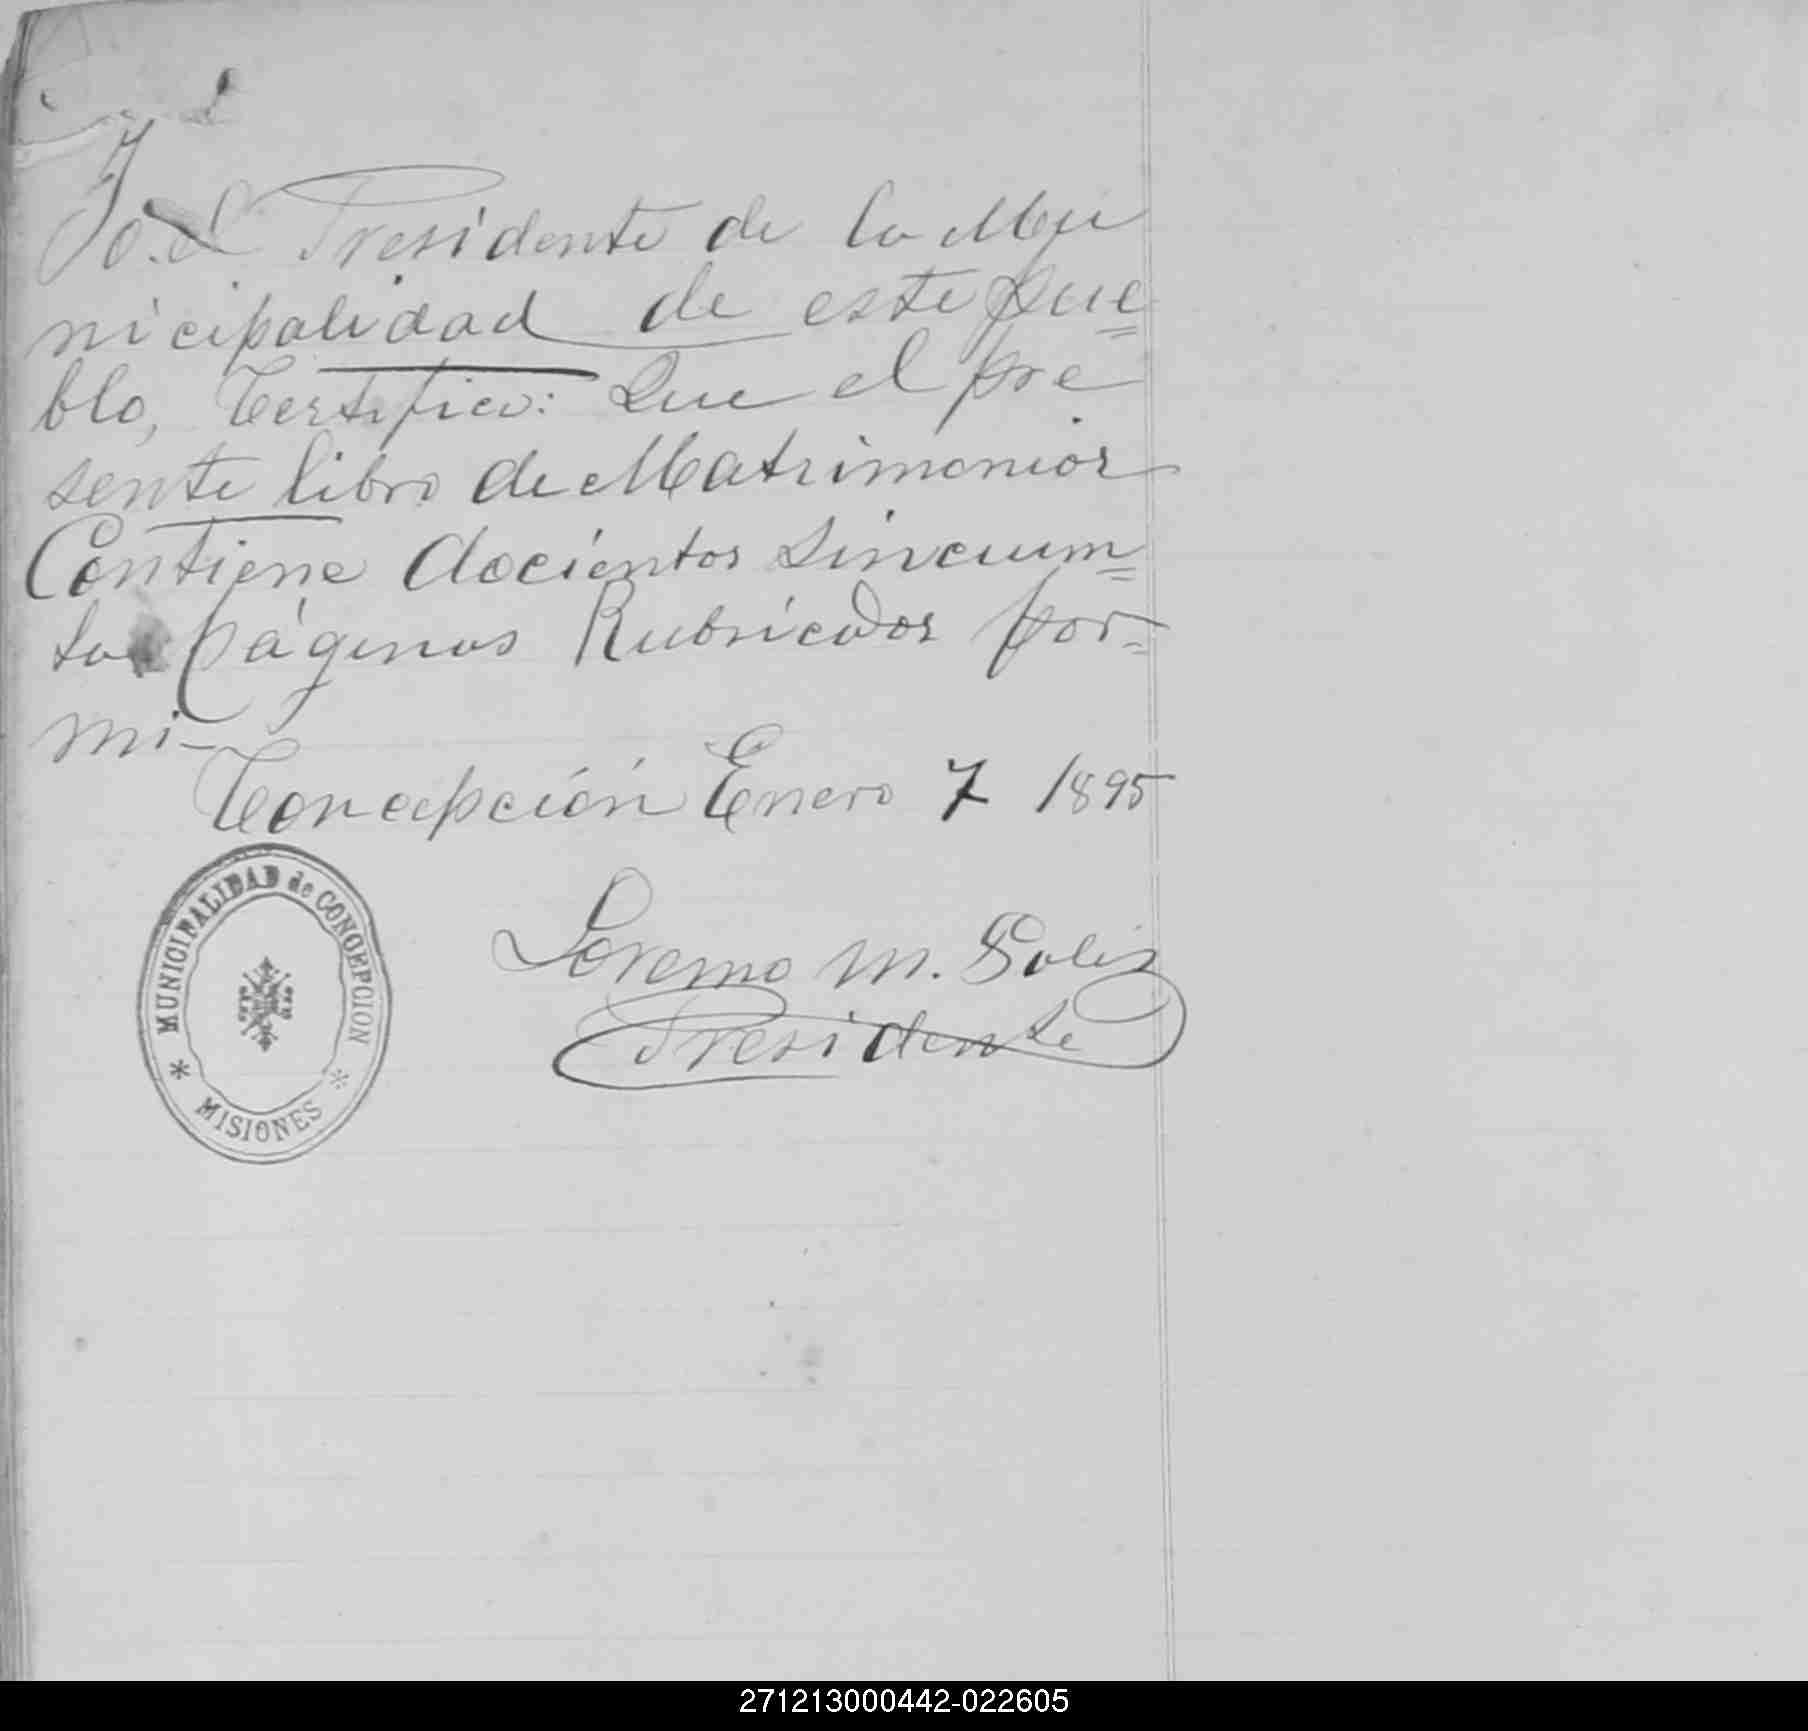 Yo. el Presidente de la Mu
nicipalidad de este pue=
blo, Certifico: Que el pre
sente libro de Matrimonios
Contiene docientos sincuen=
ta páginas Rubricados por=
mi-
Concepción Enero 7 1895
MUNICIPALIDAD de CONCEPCION
* MISIONES *
Lorenzo M. Solis
Presidente
271213000442-022605